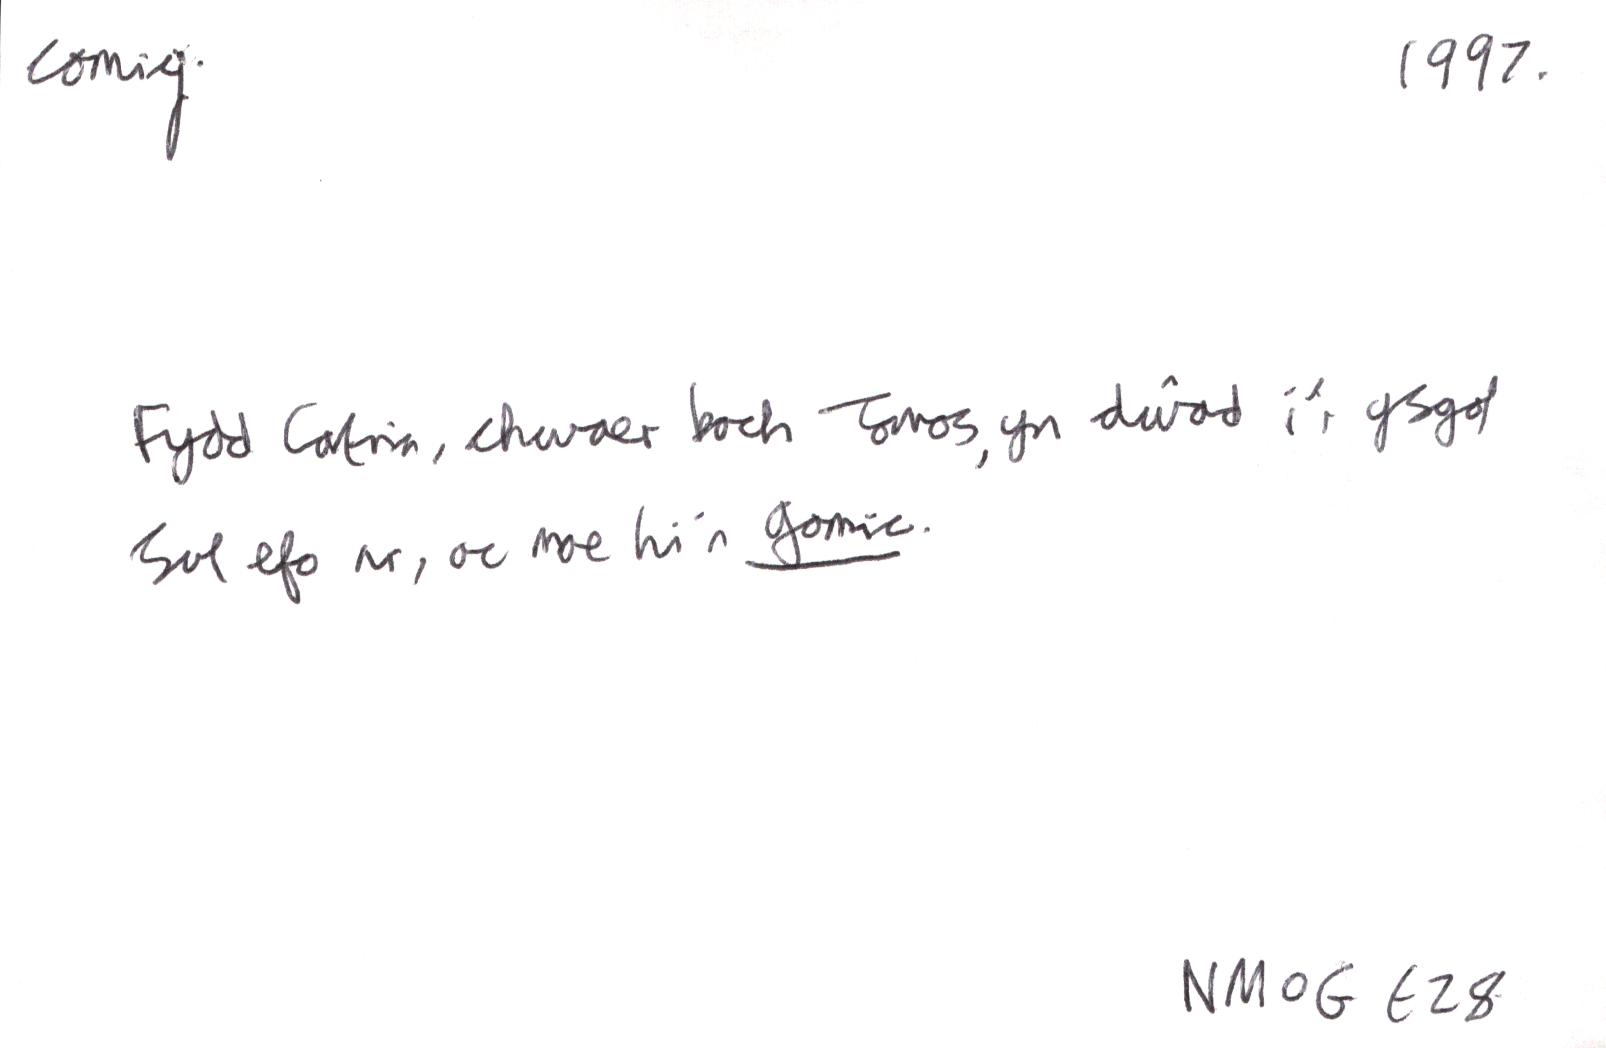 comig. 1997.
Fydd Catrin, chwaer bach Tomos, yn dŵad i'r ysgol
Sul efo ni, ac mae hi'n gomic.
NMOG t28